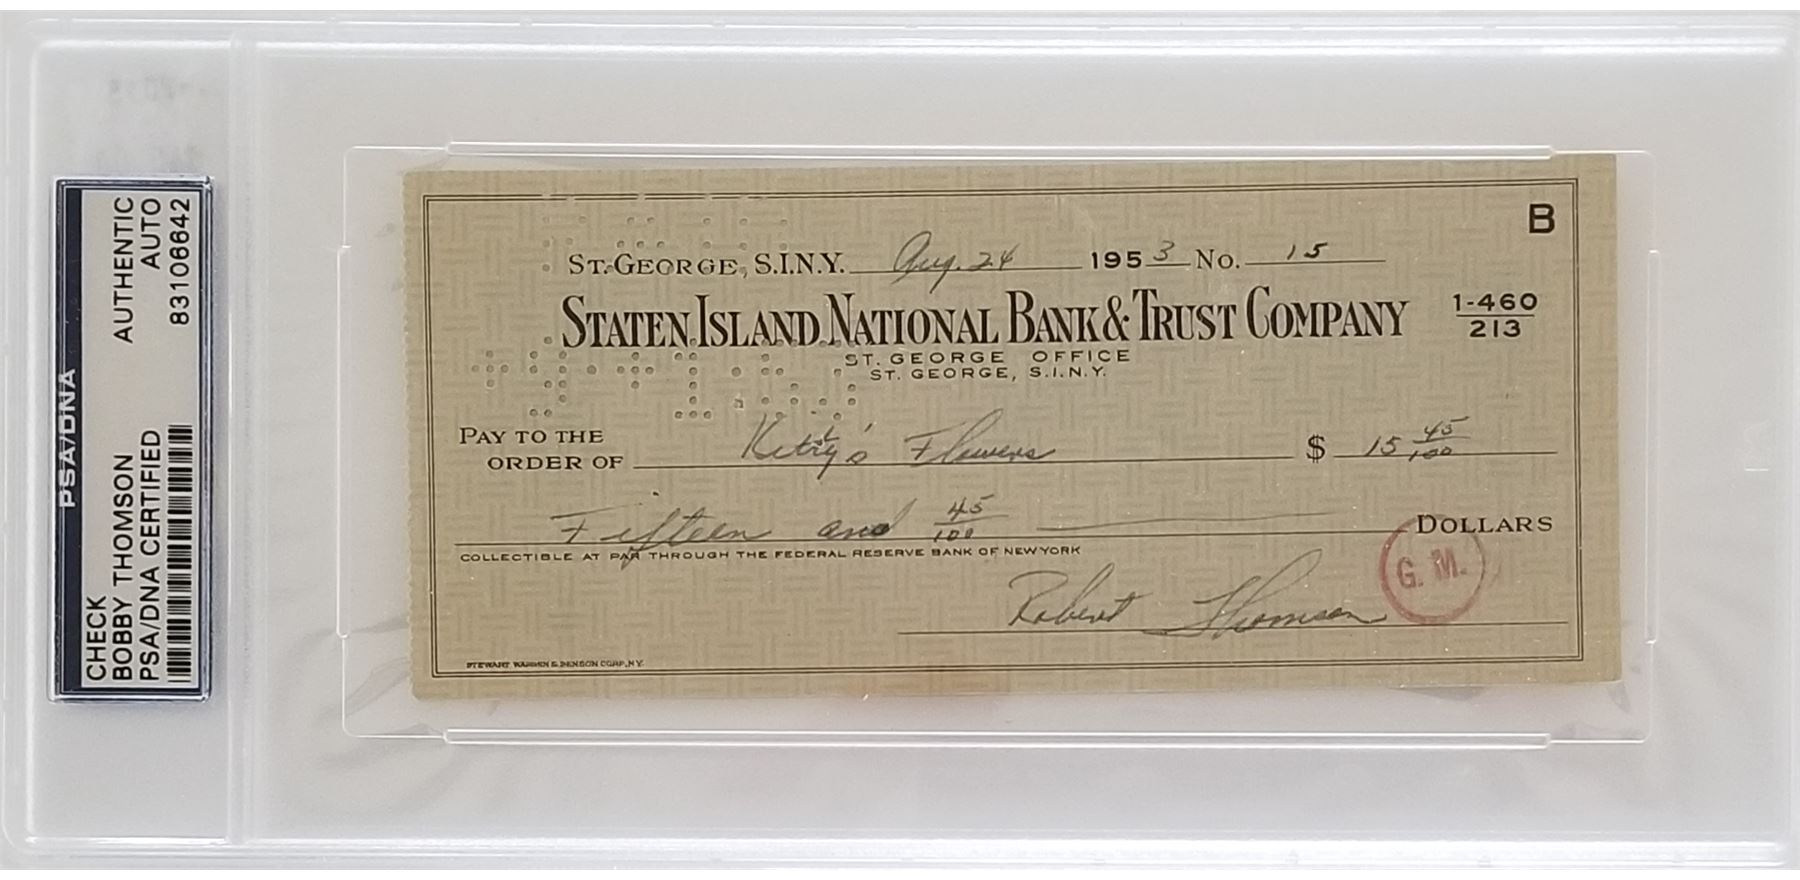 PSA/DNA
CHECK AUTHENTIC
BOBBY THOMSON AUTO
PSA/DNA CERTIFIED 83106642
B
ST. GEORGE, S.I.N.Y. Aug. 24 1953 No. 15
STATEN ISLAND NATIONAL BANK & TRUST COMPANY 1-460/213
ST. GEORGE OFFICE
ST. GEORGE, S.I.N.Y.
PAY TO THE
ORDER OF Kitty's Flowers $ 15 45/100
Fifteen and 45/100 DOLLARS
COLLECTIBLE AT PAR THROUGH THE FEDERAL RESERVE BANK OF NEW YORK
G. M.
Robert Thomson
STEWART, WARREN & BENSON CORP., N.Y.